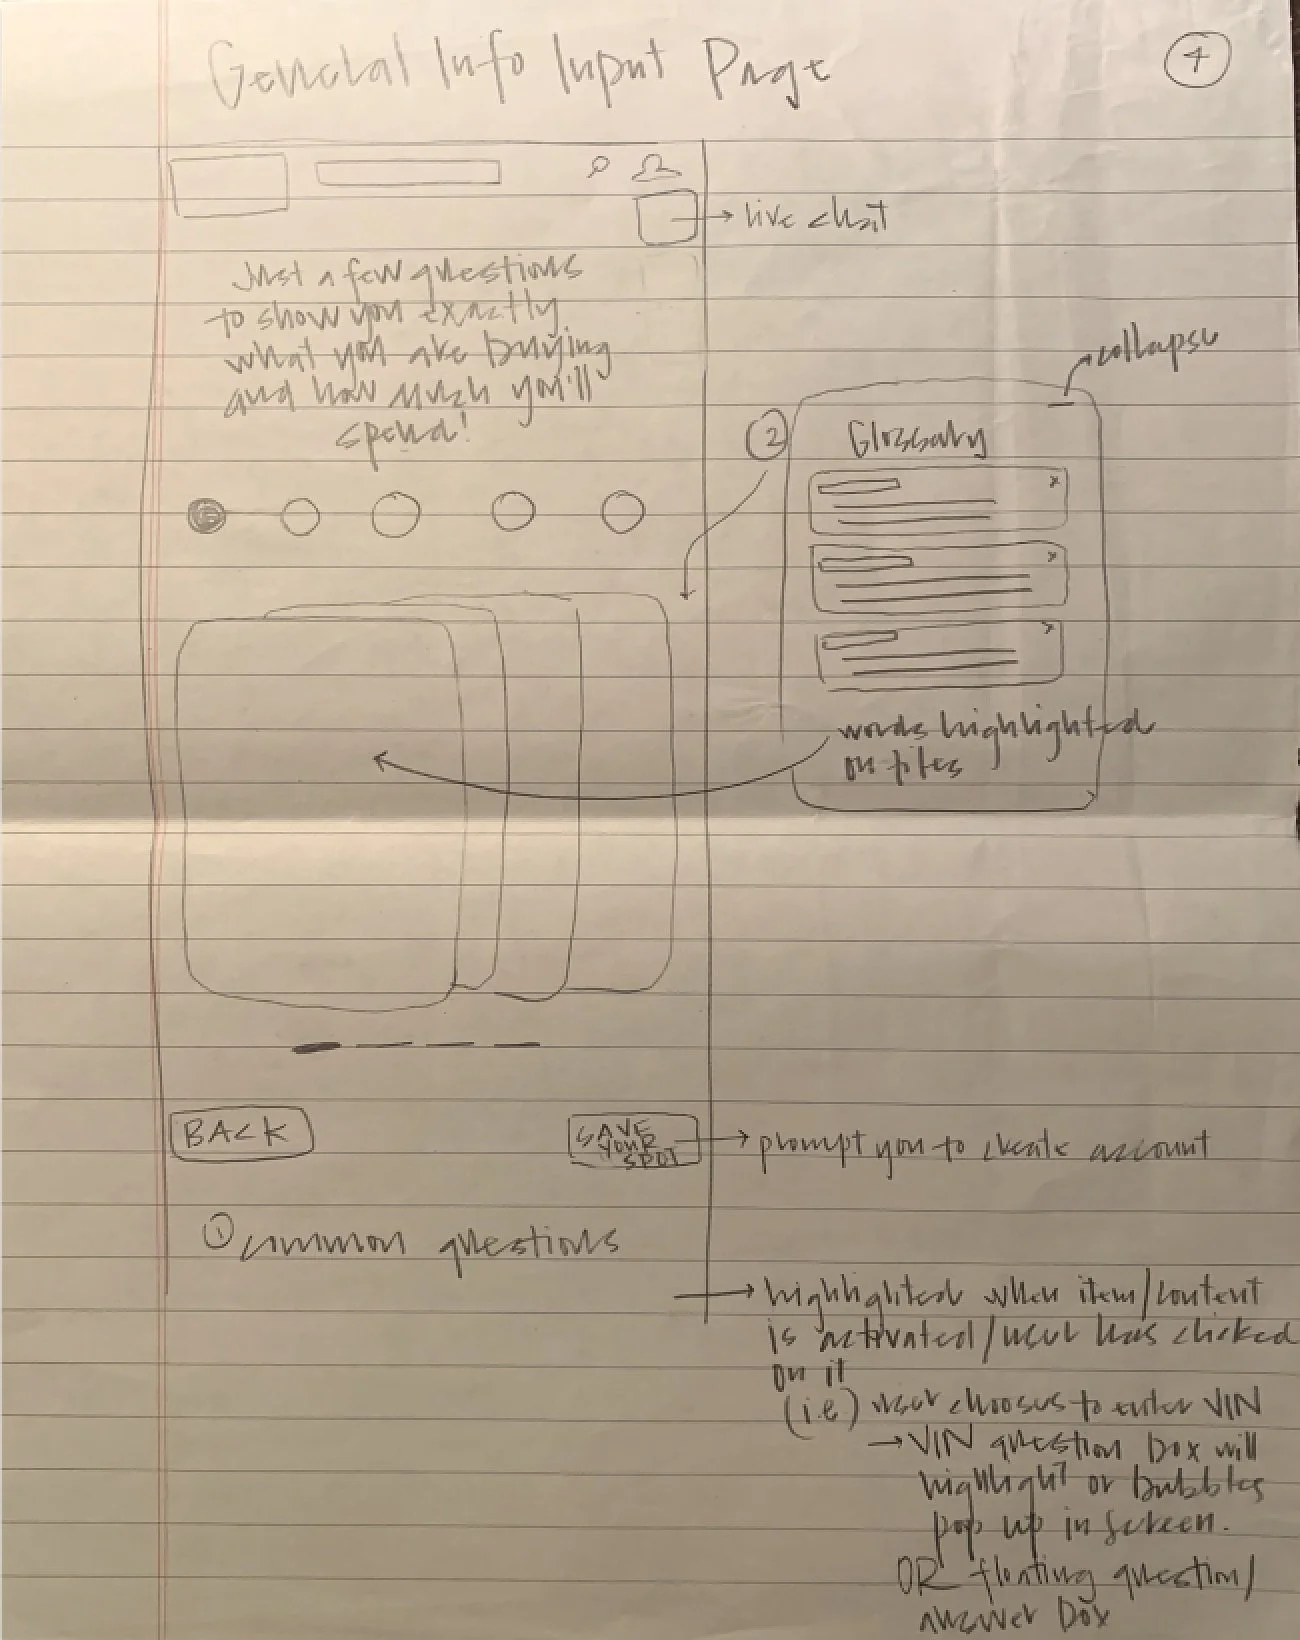 General Info Input Page
4
live chat
Just a few questions
to show you exactly
what you are buying
and how much you'll
spend!
collapse
2
Glossary
x
x
x
words highlighted
on tiles
BACK
SAVE
YOUR
SPOT
prompt you to create account
1 common questions
highlighted when item/content
is activated/user has clicked
on it
(i.e) user chooses to enter VIN
→ VIN question box will
highlight or bubbles
pop up in screen.
OR floating question/
answer box